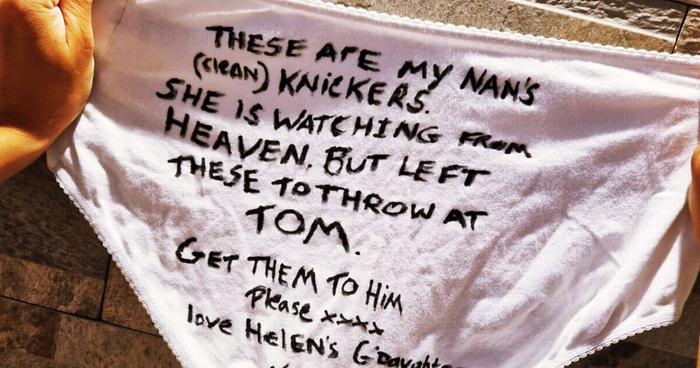 THESE ARE MY NAN'S
(CLEAN) KNICKERS.
SHE IS WATCHING FROM
HEAVEN. BUT LEFT
THESE TO THROW AT
TOM.
GET THEM TO HIM
Please xxxx
love HELEN'S